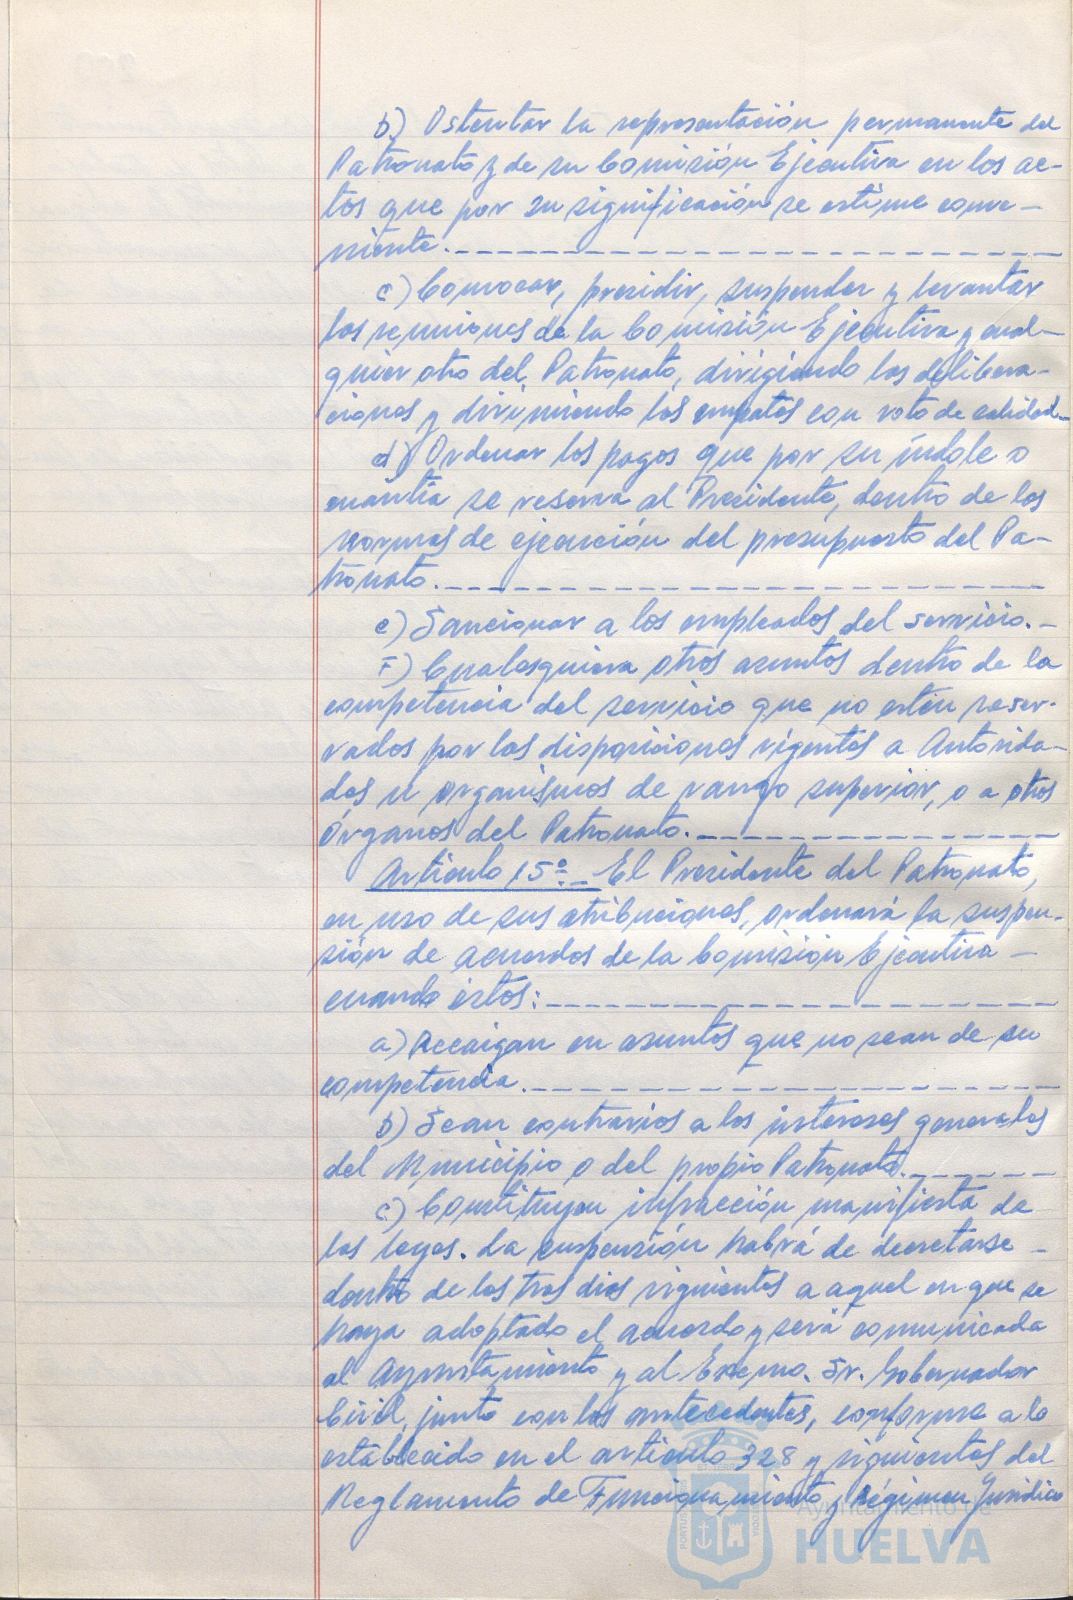 b) Ostentar la representación permanente del
Patronato y de su Comisión Ejecutiva en los ac-
tos que por su significación se estime conve-
niente.
c) Convocar, presidir, suspender y levantar
las reuniones de la Comisión Ejecutiva y cual-
quier otro del Patronato, dirigiendo las delibera-
ciones y dirimiendo los empates con voto de calidad.
d) Ordenar los pagos que por su índole o
cuantía se reserva al Presidente, dentro de las
normas de ejecución del presupuesto del Pa-
tronato.
e) Sancionar a los empleados del servicio.
F) Cualesquiera otros asuntos dentro de la
competencia del servicio que no estén reser-
vados por las disposiciones vigentes a Autorida-
des u organismos de rango superior, o a otros
Órganos del Patronato.
Artículo 15º.- El Presidente del Patronato,
en uso de sus atribuciones, ordenará la suspen-
sión de acuerdos de la Comisión Ejecutiva -
cuando éstos:
a) Recaigan en asuntos que no sean de su
competencia.
b) Sean contrarios a los intereses generales
del Municipio o del propio Patronato.
c) Constituyan infracción manifiesta de
las leyes. La suspensión habrá de decretarse -
dentro de los tres días siguientes a aquel en que se
haya adoptado el acuerdo y será comunicada
al Ayuntamiento y al Excmo. Sr. Gobernador
Civil, junto con los antecedentes, conforme a lo
establecido en el artículo 328 y siguientes del
Reglamento de Funcionamiento y Régimen Jurídico
Ayuntamiento de
HUELVA